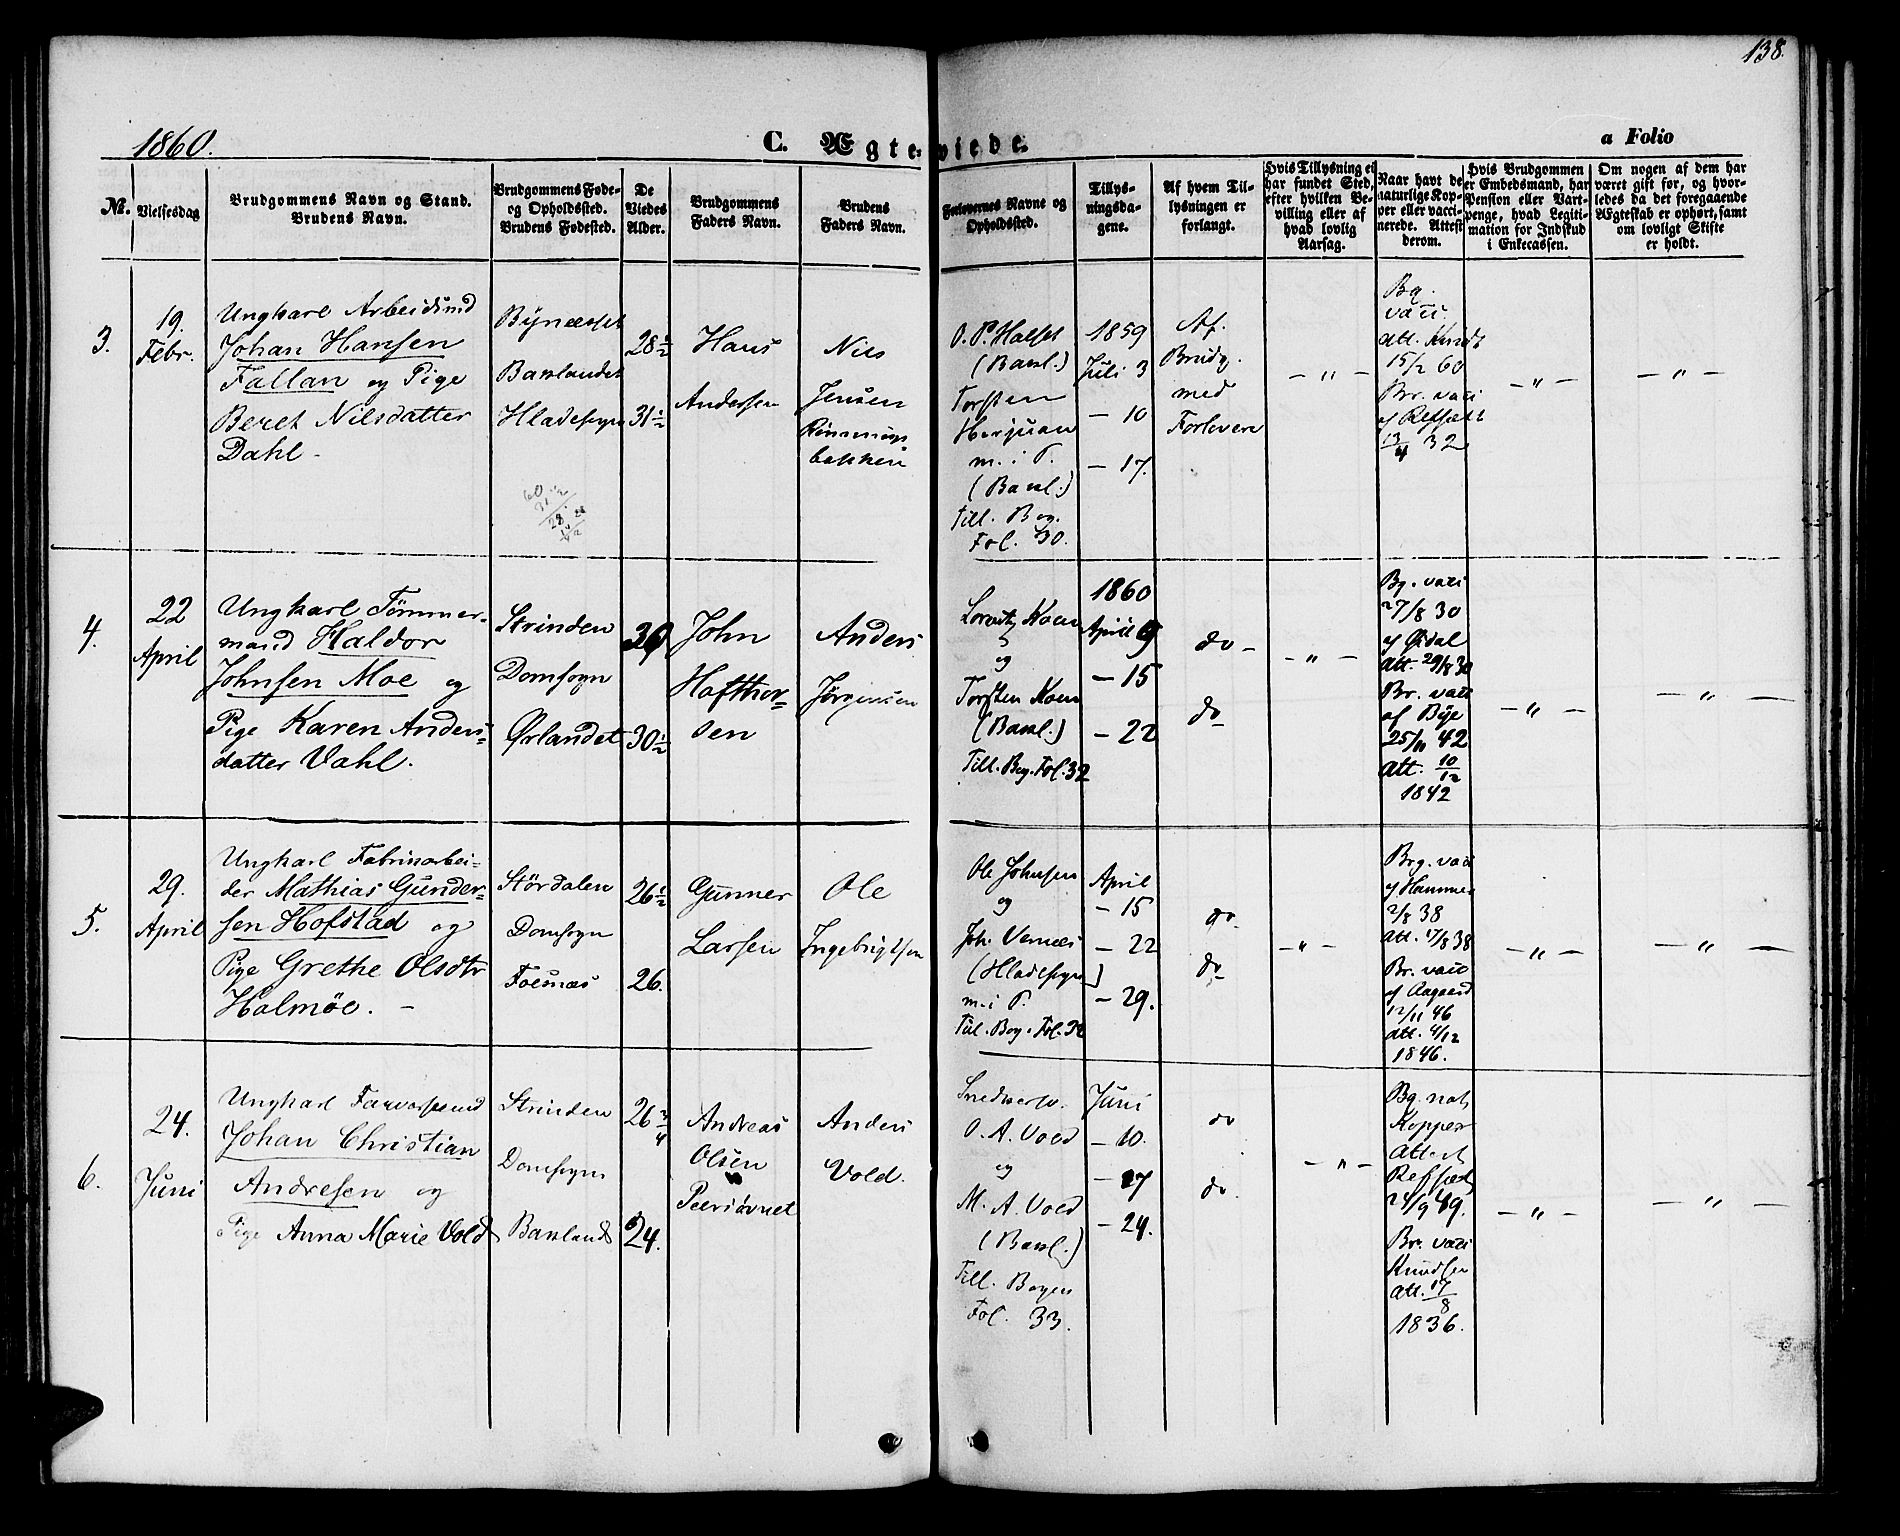 138.
1860.
C. Ægteviede.
a Folio
No.
Vielsesdag
Brudgommens Navn og Stand.
Brudens Navn.
Brudgommens Føde-
og Opholdssted.
Brudens Fødested.
De
Viedes
Alder.
Brudgommens
Faders Navn.
Brudens
Faders Navn.
Forlovernes Navne og
Opholdssted.
Tillys-
ningsda-
gene.
Af hvem Til-
lysningen er
forlangt.
Hvis Tillysning ei
har fundet Sted,
efter hvilken Be-
villing eller af
hvad lovlig
Aarsag.
Naar havt de
naturlige Kop-
per eller vacci-
nerede. Attest
derom.
Hvis Brudgommen
er Embedsmand, har
Pension eller Vart-
penge, hvad Legiti-
mation for Indskud
i Enkecassen.
Om nogen af dem har
været gift før, og hvor-
ledes da det foregaaende
Ægteskab er ophørt, samt
om lovligt Skifte
er holdt.
3.
19.
Febr.
Ungkarl Arbeidsmd
Johan Hansen
Fallan og Pige
Beret Nilsdatter
Dahl -
Bynæsset
Baklandet
Hladesogn
28 1/2
31 1/2
Hans
Andersen
Nils
Jensen
bakken
O. P. Halset
(Bakl.)
Torsten
Herjuan
m. i P.
(Bakl.)
Till. Bog.
Fol. 30.
1859
Juli 3
- 10
- 17.
Af.
Brudg.
med
Forlovere
- " -
Bg.
vacc.
Att. Knudt
15/2 60
Br. vacc
13/4 32
- " -
- " -
4.
22
April
Ungkarl Tömmer-
mand Haldor
Johnsen Moe og
Pige Karen Anders-
datter Vahl.
Strinden
Domsogn
Ørlandet
30 1/2
John
Hofthor-
sen
Anders
Jörgensen
og
Torsten Koen
(Bakl.)
Till. Bog. Fol. 32
1860
April 9
- 15
- 22
do -
do
- " -
Bg. vacc
27/8 30
Att. 29/8 30
Br. vacc
af Bye
25/11 42
Att. 10/12
1842
- " -
- " -
5.
29.
April
Ungkarl Fabrikarbei-
der Mathias Gunder-
sen Hofstad og
Pige Grethe Olsdtr
Holmöe. -
Stördalen
Domsogn
Foesnæs
26 1/2
26.
Gunner
Larsen
Ole
Ingebrigtsen
Ole Johnsen
og
Joh. Vernæs
(Hladesogn)
m. i P.
Till. Bog. Fol. 32
April
- 15
- 22
- 29.
do
do
- " -
Brg. vacc
af Hammer
2/8 38
Att. 17/8 38
Br. vacc
af Aagaard
12/11 46
Att. 4/12
1846.
- " -
- " -
6.
24.
Juni
Ungkarl Farversvend
Johan Christian
Andresen og
Pige Anna Marie Vold
Strinden
Domsogn
Bakland
26 3/4
24.
Andreas
Olsen
Anders
Vold.
Snedkersv.
O. A. Vold
og
M. A. Vold
(Bakl.)
Till. Bogen
Fol. 33.
Juni
- 10.
- 17
- 24.
do
do.
- " -
Bg. nat
Kopper
Attest
24/9 49.
Br. vacc
Knudsen
Att. 17/8
1836.
- " -
- " -